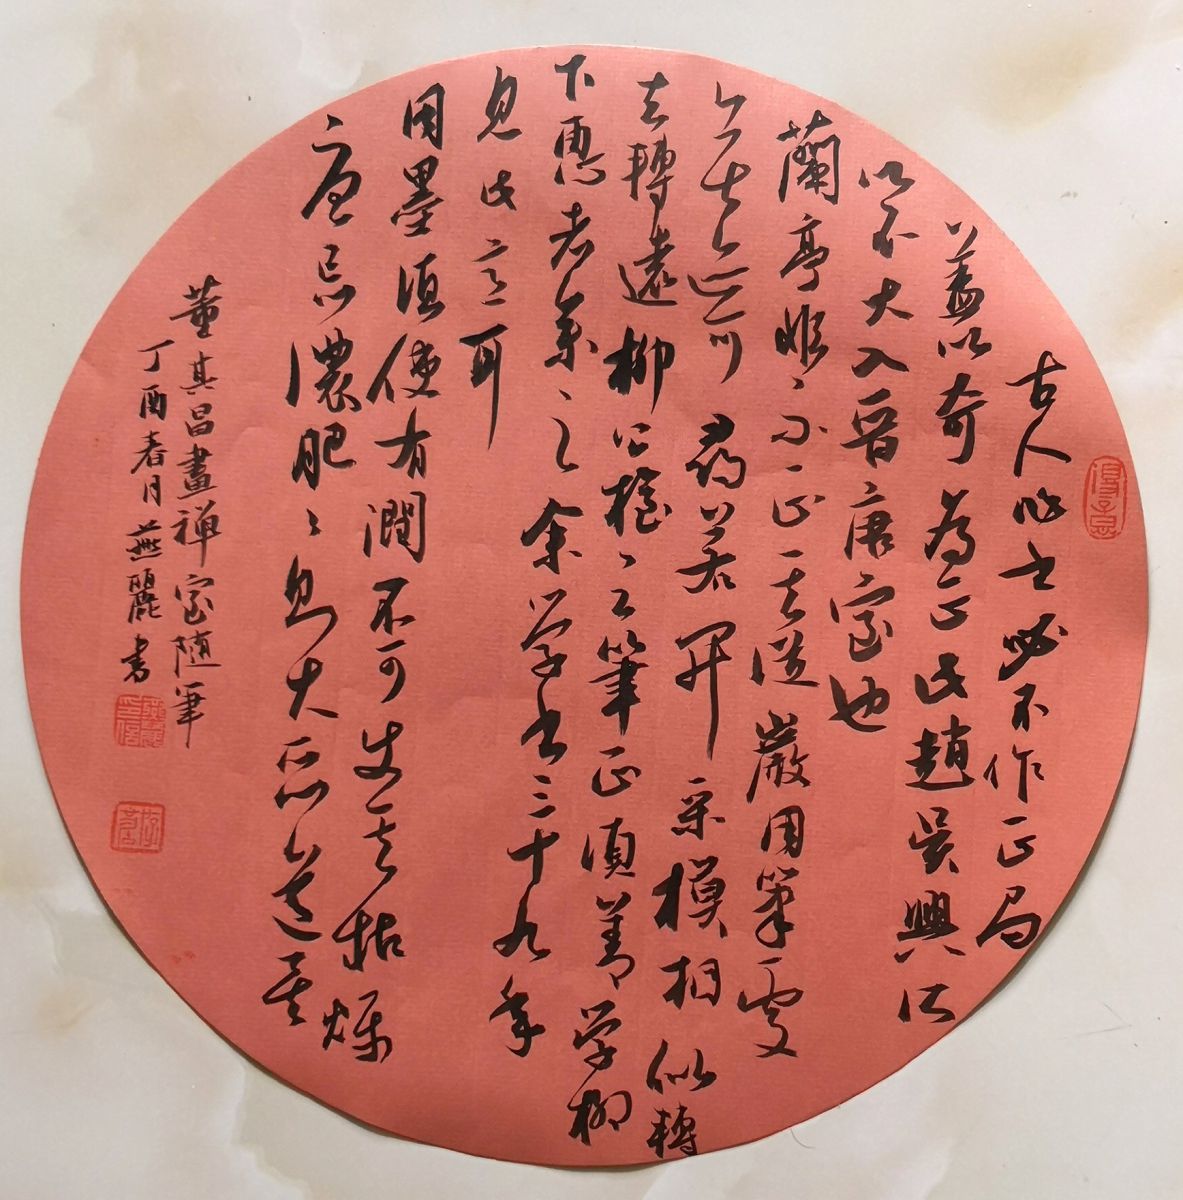 古人作書必不作正局
蓋以奇為正此趙吳興所
以不大入晉唐室也
蘭亭不正其縱用筆處
跡可尋若模相似轉
去轉遠柳公權云筆正須善學柳
下惠者參之余學書三十九年
見此意耳
用墨須使有潤不可使其枯燥
尤忌濃肥〻則大惡道矣
董其昌畫禅室随筆
丁酉春月燕麗書